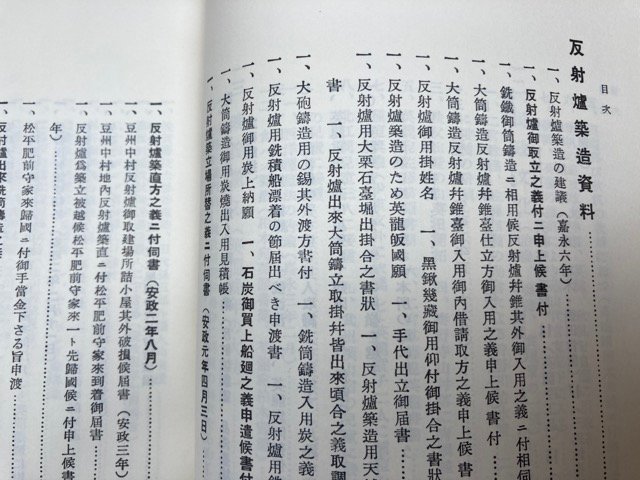 目次
反射爐築造資料
一、反射爐築造の建議（嘉永六年）
一、反射爐御取立之義付ニ申上候書付
一、銑鐵御筒鑄造ニ相用候反射爐幷錐其外御入用之義ニ付相伺
一、大筒鑄造反射爐幷錐臺仕立方御入用之義申上候書付
一、大筒鑄造反射爐幷錐臺御入用御內借請取方之義申上候書
一、反射爐御用掛姓名　一、黑鍬幾藏御用仰付御掛合之書狀
一、反射爐築造のため英龍皈國願　一、手代出立御屆書
一、反射爐用大栗石臺堀出掛合之書狀　一、反射爐築造用天城
書　一、反射爐出來大筒鑄立取掛幷皆出來頃合之義取調
一、大砲鑄造用の錫其外渡方書付　一、銑筒鑄造入用炭之義
一、反射爐用銑積船漂着の節屆出べき申渡書　一、反射爐用鐵
一、反射爐御用炭上納願　一、石炭御買上船廻之義申遣候書付
一、大筒鑄造御用炭燒出入用見積帳
一、反射爐築立場所替之義ニ付伺書（安政元年四月三日）
一、反射爐築直方之義ニ付伺書（安政二年八月）
一、豆州中村反射爐御取建場所詰小屋其外破損候屆書（安政三年）
一、豆州中村地內反射爐築直ニ付松平肥前守家來到着御屆書
一、反射爐爲築立被越候松平肥前守家來一ト先歸國候ニ付申上候書
年）
一、松平肥前守家來歸國ニ付御手當金下さる旨申渡
一、反射爐出來銑筒鑄造